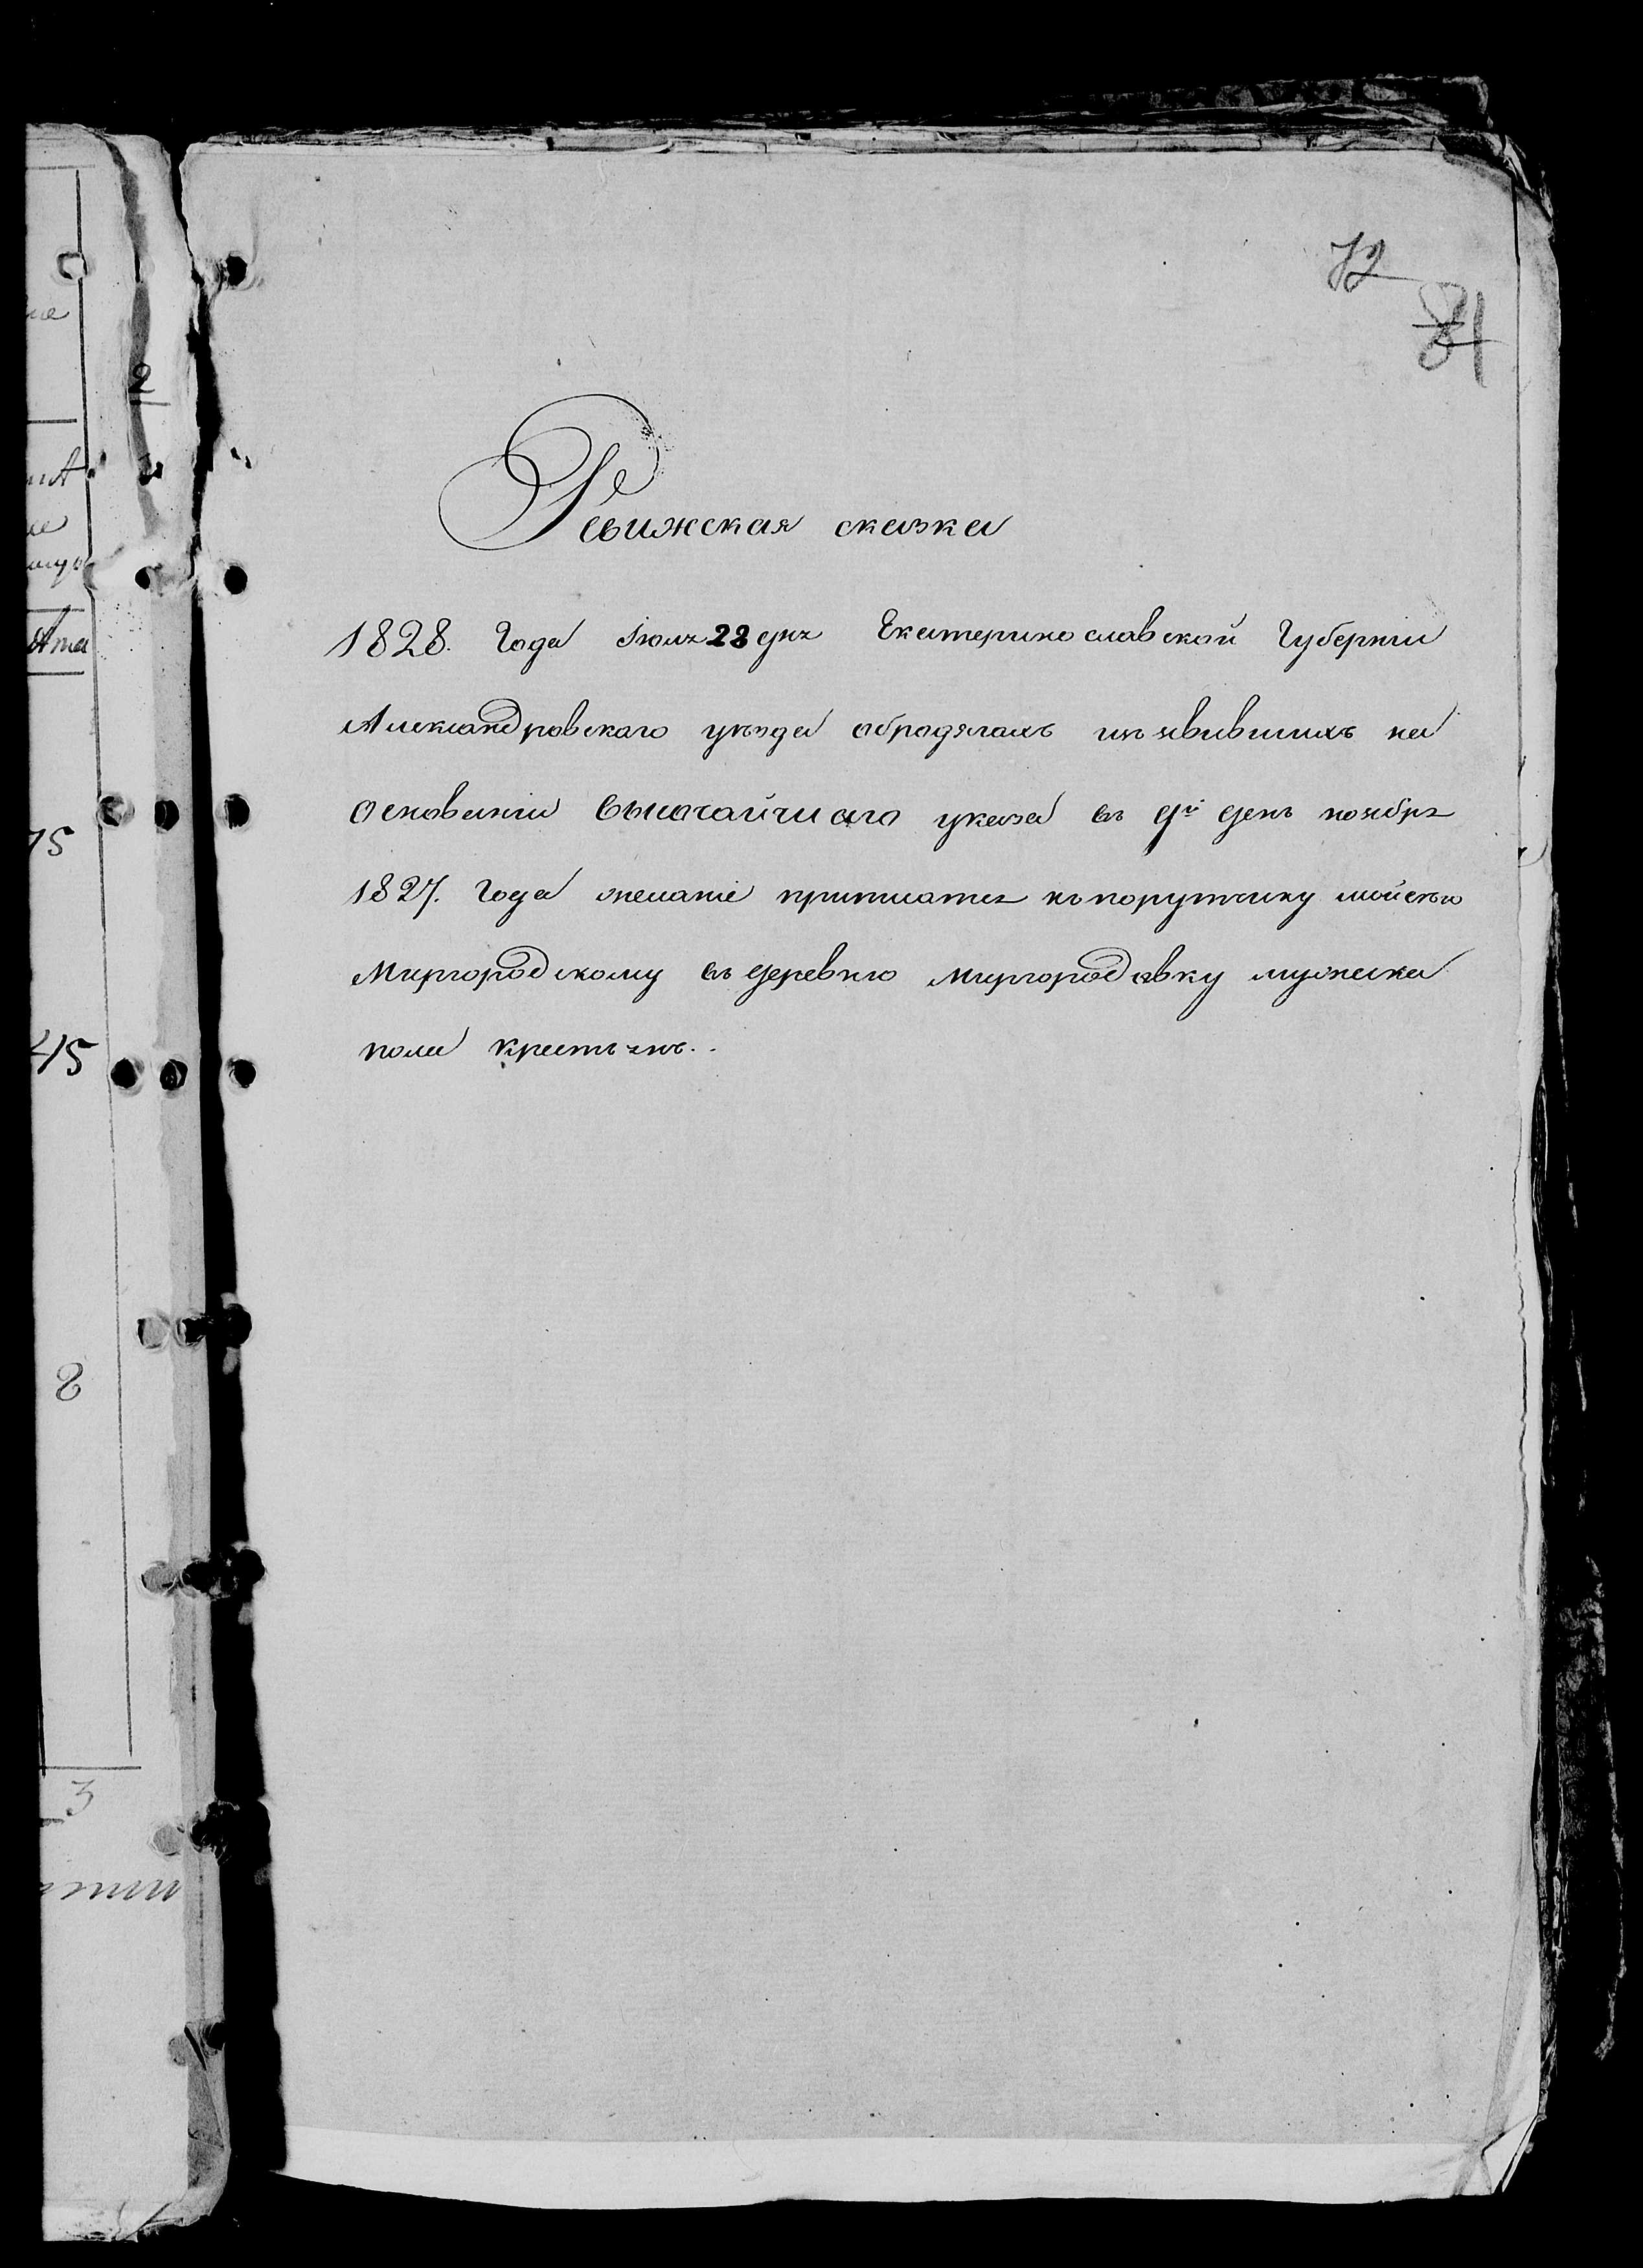 72
81
Ревижская сказка
1828. Года Іюля 28 дня Екатеринославской Губерніи
Александровскаго уѣзда обродягахъ изъявившихъ на
основаніи высочайшаго указа въ 9й день ноября
1827. Года желаніе приписатся къ порутчику мойсѣю
Миргородскому въ деревню Миргородовку мужеска
пола крестьянъ..
2
75
415
8
3